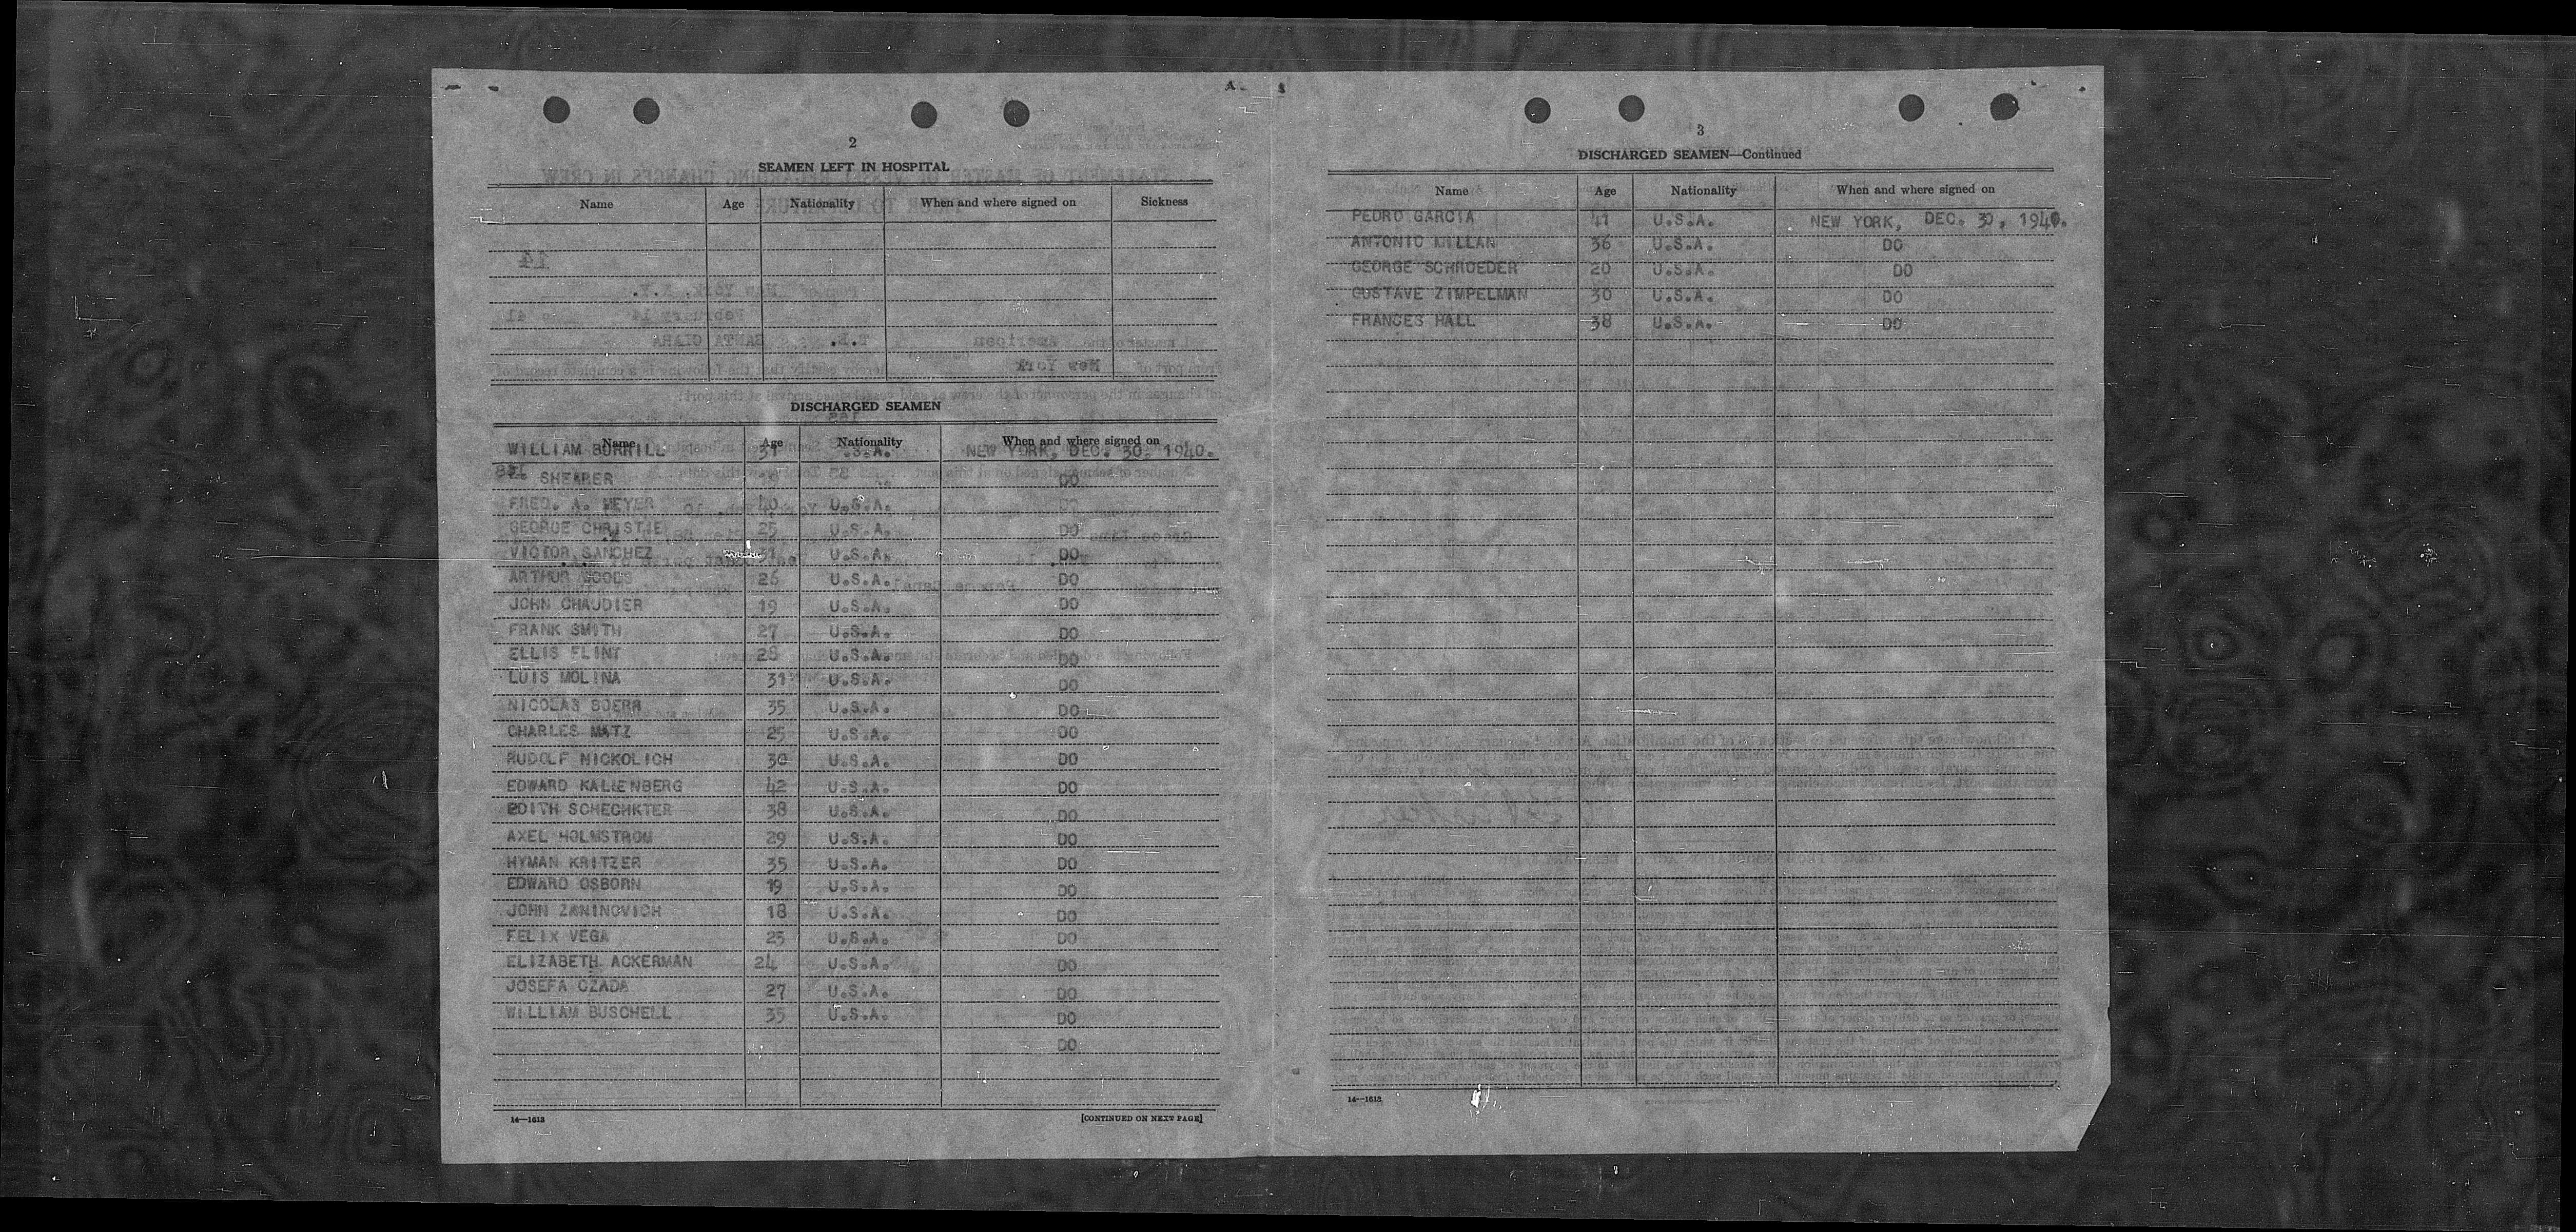 2
SEAMEN LEFT IN HOSPITAL
Name Age Nationality When and where signed on Sickness
DISCHARGED SEAMEN
Name Age Nationality When and where signed on
WILLIAM BURRILL 31 U.S.A. NEW YORK, DEC. 30, 1940.
SHEARER DO
FRED. A. MEYER 40 U.S.A. DO
GEORGE CHRISTIE 25 U.S.A. DO
VICTOR SANCHEZ 31 U.S.A. DO
ARTHUR WOODS 26 U.S.A. DO
JOHN CHAUDIER 19 U.S.A. DO
FRANK SMITH 27 U.S.A. DO
ELLIS FLINT 28 U.S.A. DO
LUIS MOLINA 31 U.S.A. DO
NICOLAS 35 U.S.A. DO
CHARLES MATZ 25 U.S.A. DO
RUDOLF NICKOLICH 30 U.S.A. DO
EDWARD KALLENBERG 42 U.S.A. DO
EDITH SCHECHKTER 38 U.S.A. DO
AXEL HOLMSTROM 29 U.S.A. DO
HYMAN KRITZER 35 U.S.A. DO
EDWARD OSBORN 19 U.S.A. DO
JOHN ZANINOVICH 18 U.S.A. DO
FELIX VEGA 25 U.S.A. DO
ELIZABETH ACKERMAN 24 U.S.A. DO
JOSEFA CZADA 27 U.S.A. DO
WILLIAM BUSCHELL 35 U.S.A. DO
DO
14—1613 [CONTINUED ON NEXT PAGE]
3
DISCHARGED SEAMEN—Continued
Name Age Nationality When and where signed on
PEDRO GARCIA 41 U.S.A. NEW YORK, DEC. 30, 1940.
ANTONIO MILLAN 36 U.S.A. DO
GEORGE SCHROEDER 20 U.S.A. DO
GUSTAVE ZIMPELMAN 30 U.S.A. DO
FRANCES HALL 38 U.S.A. DO
14—1613